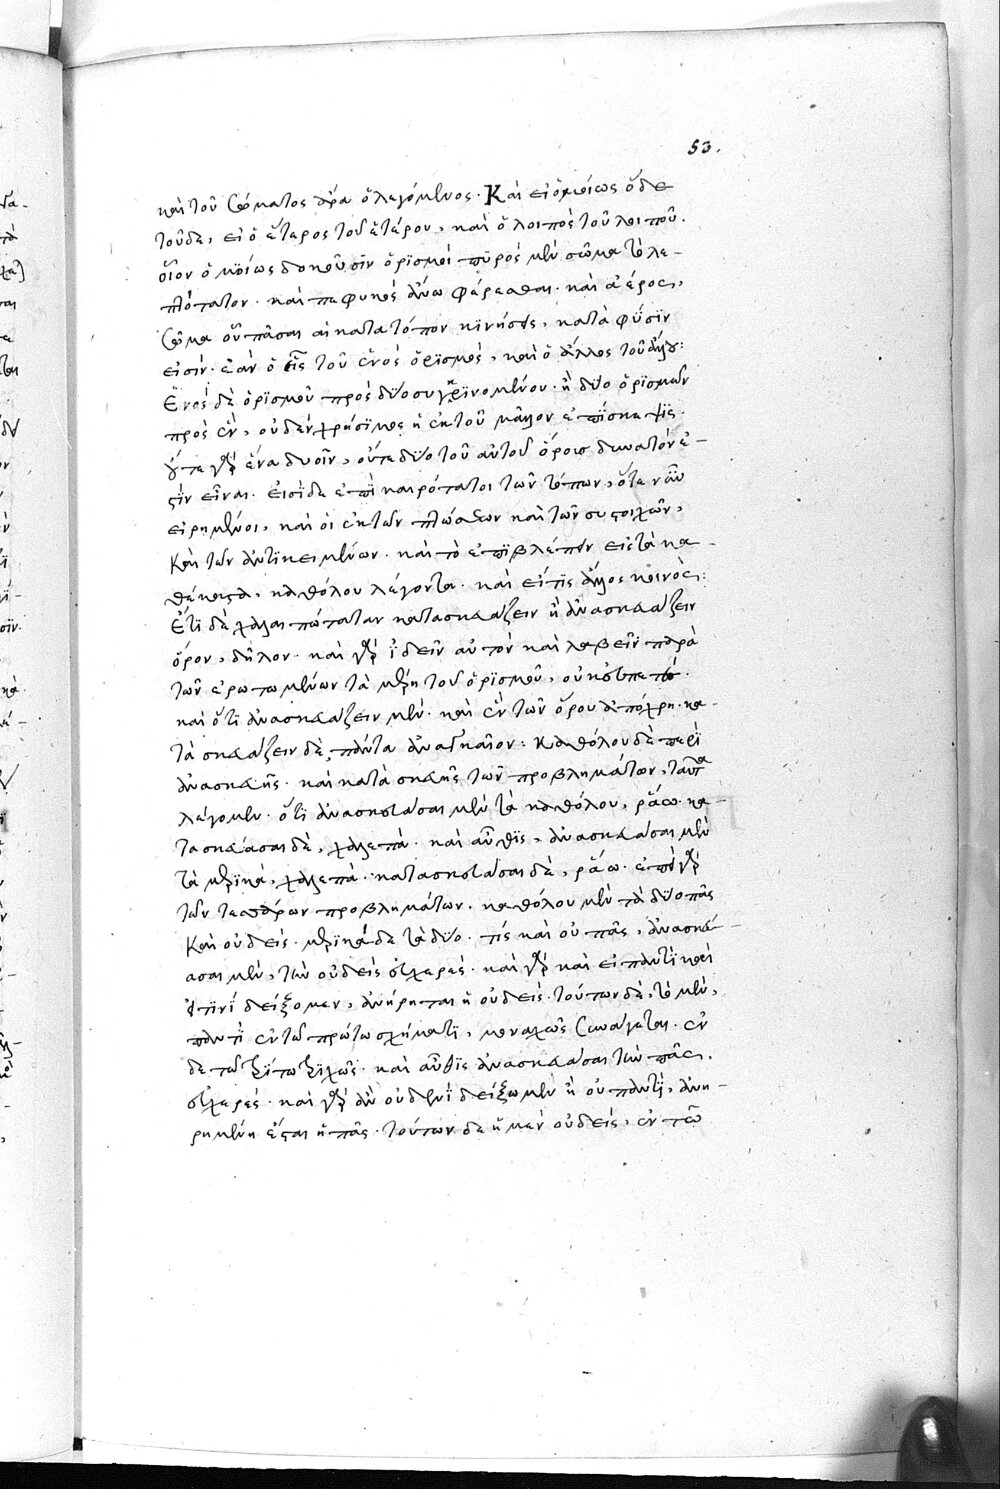 53.
καὶ τοῦ σώματος ἄρα ὁ λεγόμενος. Καὶ εἰ ὁμοίως ὅδε
τοῦδε, εἰ ὁ ἕτερος τοῦ ἑτέρου, καὶ ὁ λοιπὸς τοῦ λοιποῦ.
οἷον ὁμοίως δοκοῦσιν ὁρισμοὶ πυρὸς μὲν σῶμα τὸ λε-
πτότατον. καὶ πεφυκὸς ἄνω φέρεσθαι. καὶ ἀέρος,
σῶμα οὗ πᾶσαι αἱ κατὰ τόπον κινήσεις, κατὰ φύσιν
εἰσίν. ἐὰν ὁ εἷς τοῦ ἑνὸς ὁρισμός, καὶ ὁ ἄλλος τοῦ ἄλλου:
Ἑνὸς δὲ ὁρισμοῦ πρὸς δύο συγκρινομένου. ἢ δύο ὁρισμῶν
πρὸς ἕν, οὐδὲν χρήσιμος ἡ ἐκ τοῦ μᾶλλον ἐπίσκεψις.
οὔτε γὰρ ἕνα δυοῖν, οὔτε δύο τοῦ αὐτοῦ ὅρους δυνατόν ἐ-
στιν εἶναι. Εἰσὶ δὲ ἐπικαιρότατοι τῶν τόπων, οἵτε νῦν
εἰρημένοι, καὶ οἱ ἐκ τῶν πτώσεων καὶ τῶν συστοίχων,
Καὶ τῶν ἀντικειμένων. καὶ τὸ ἐπιβλέπειν εἰς τὰ κα-
θέκαστα, καθόλου λέγοντα. καὶ εἴ τις ἄλλος κοινὸς:
Ἔτι δὲ χαλεπώτατον κατασκευάζειν ἢ ἀνασκευάζειν
ὅρον, δῆλον. καὶ γὰρ ἰδεῖν αὐτὸν καὶ λαβεῖν παρὰ
τῶν ἐρωτωμένων τὰ μέρη τοῦ ὁρισμοῦ, οὐκ εὐπετές.
καὶ ὅτι ἀνασκευάζειν μὲν. καὶ ἓν τῶν ὅρου ἀπόχρη. κα-
τασκευάζειν δὲ, πάντα ἀναγκαῖον: Καθόλου δὲ περὶ
ἀνασκευῆς. καὶ κατασκευῆς τῶν προβλημάτων, ταῦτα
λέγομεν. ὅτι ἀνασκευάσαι μὲν τὰ καθόλου, ῥάω. κα-
τασκευάσαι δὲ, χαλεπὰ. καὶ αὖθις, ἀνασκευάσαι μὲν
τὰ μερικὰ, χαλεπὰ. κατασκευάσαι δὲ, ῥάω. ἐπεὶ γὰρ
τῶν τεσσάρων προβλημάτων. καθόλου μὲν τὰ δύο πᾶς
Καὶ οὐδείς. μερικὰ δὲ τὰ δύο. τίς καὶ οὐ πᾶς, ἀνασκευ-
άσαι μὲν, τὸν οὐδεὶς εὐχερές. καὶ γὰρ καὶ εἰ παντὶ καὶ
εἰ τινὶ δείξομεν, ἀνήρηται ἡ οὐδείς. τούτων δὲ, τὸ μὲν,
παντὶ ἐν τῷ πρώτῳ σχήματι, μοναχῶς συνάγεται. ἐν
δὲ τῷ τρίτῳ τριχῶς. καὶ αὖθις ἀνασκευάσαι τὸν πᾶς,
εὐχερές. καὶ γὰρ ἂν οὐδενὶ δείξωμεν ἢ οὐ παντὶ, ἀνη-
ρημένη ἔσται ἡ πᾶς. τούτων δὲ ἡ μὲν οὐδείς, ἐν τῷ